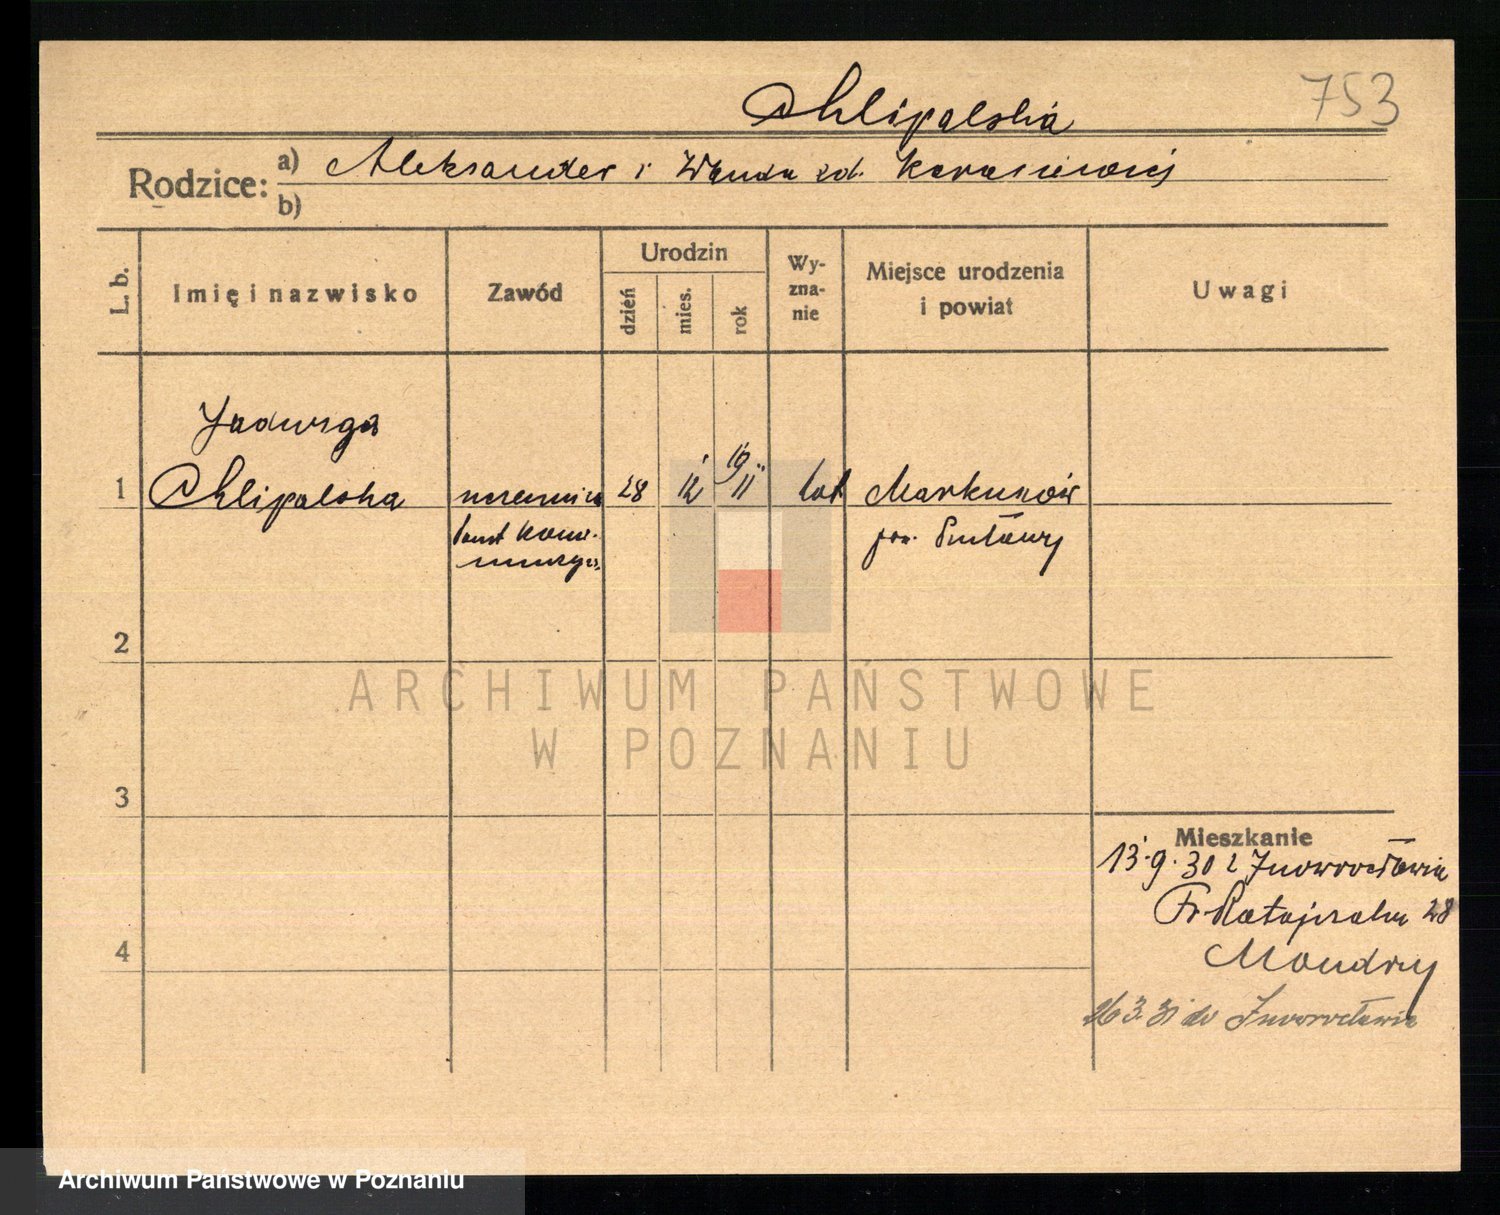 Chlipalska 753
Rodzice: a) Aleksander i Wanda zd. Karasiewicz
b)
L. b. Imię i nazwisko Zawód Urodzin dzień mies. rok Wy-zna-nie Miejsce urodzenia i powiat Uwagi
Jadwiga
1 Chlipalska uczennica 28 12 1911 kat Markuszów
pow. Puławy
2
ARCHIWUM PAŃSTWOWE
W POZNANIU
3
Mieszkanie
13.9.30 z Inowrocławia
Fr. Ratajczaka 28
Moudry
4
26 3. 31 do Inowrocławia
Archiwum Państwowe w Poznaniu